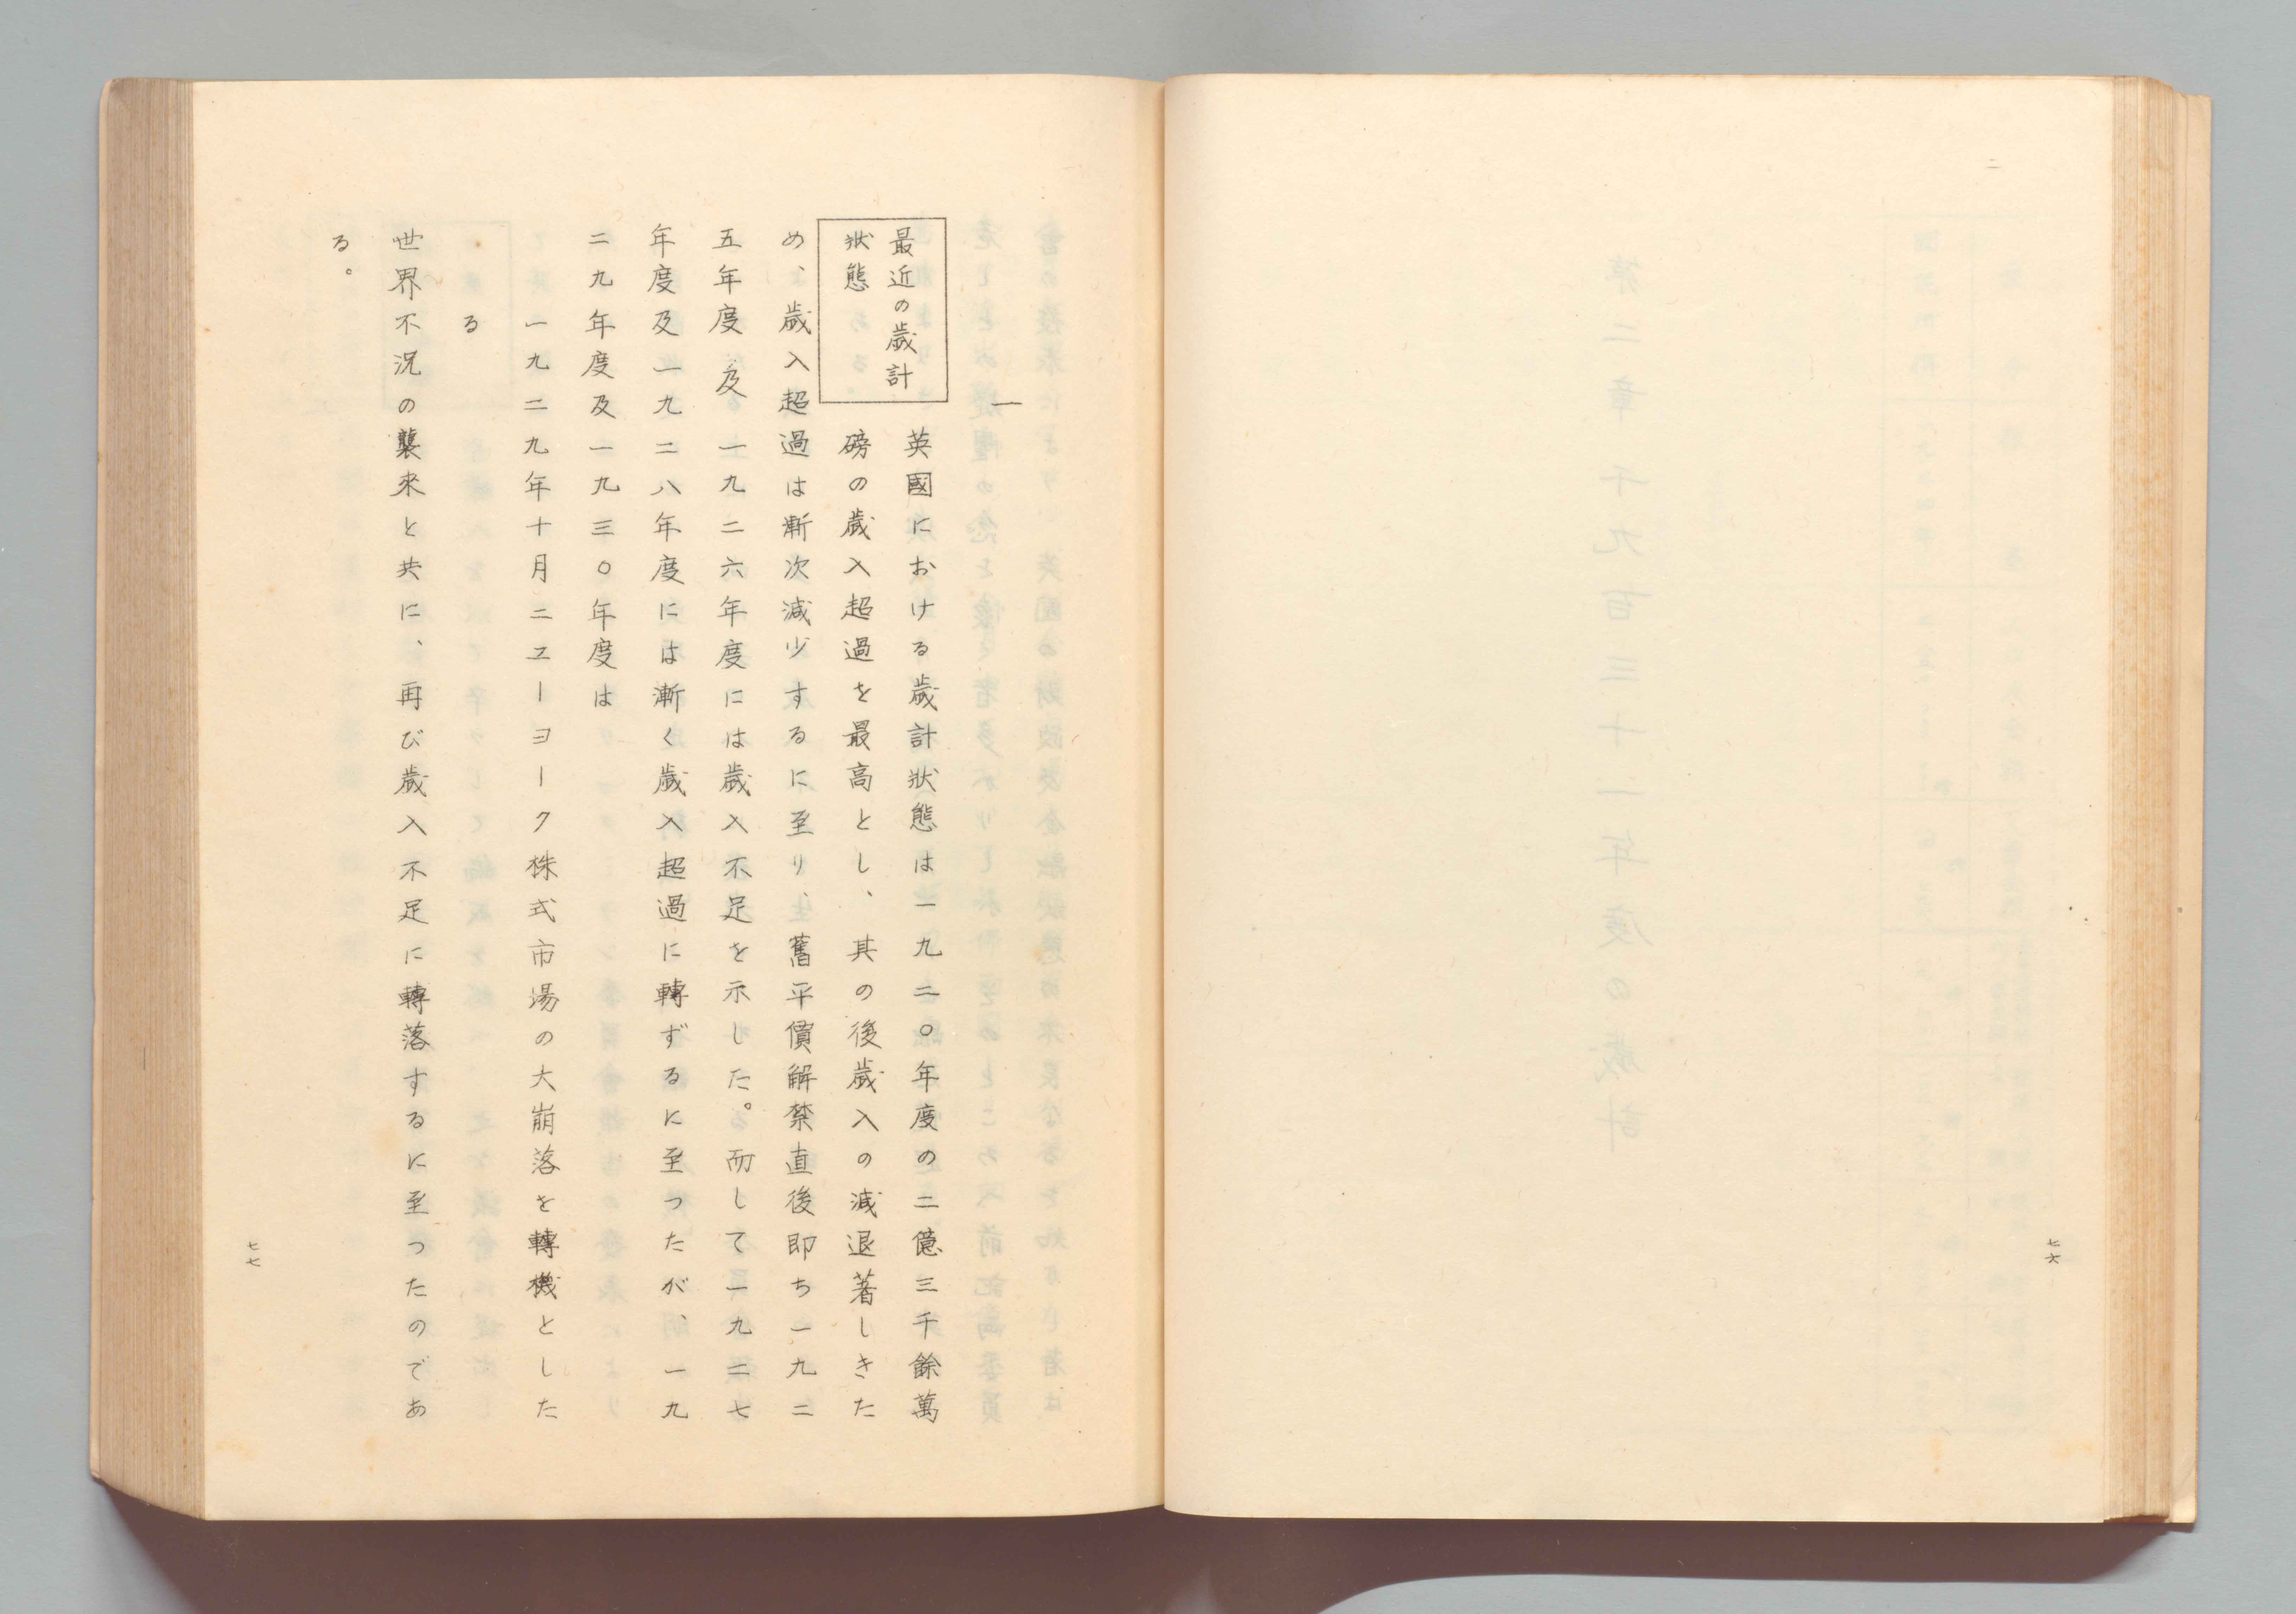 七六
一
最近の歲計
狀態
英國における歲計狀態は一九二〇年度の二億三千餘萬
磅の歲入超過を最高とし、其の後歲入の減退著しきた
め、歲入超過は漸次減少するに至り、舊平價解禁直後即ち一九二
五年度及一九二六年度には歲入不足を示した。而して一九二七
年度及一九二八年度には漸く歲入超過に轉ずるに至つたが、一九
二九年度及一九三〇年度は
一九二九年十月ニユーヨーク株式市場の大崩落を轉機とした
る
世界不況の襲来と共に、再び歲入不足に轉落するに至つたのであ
る。
七七